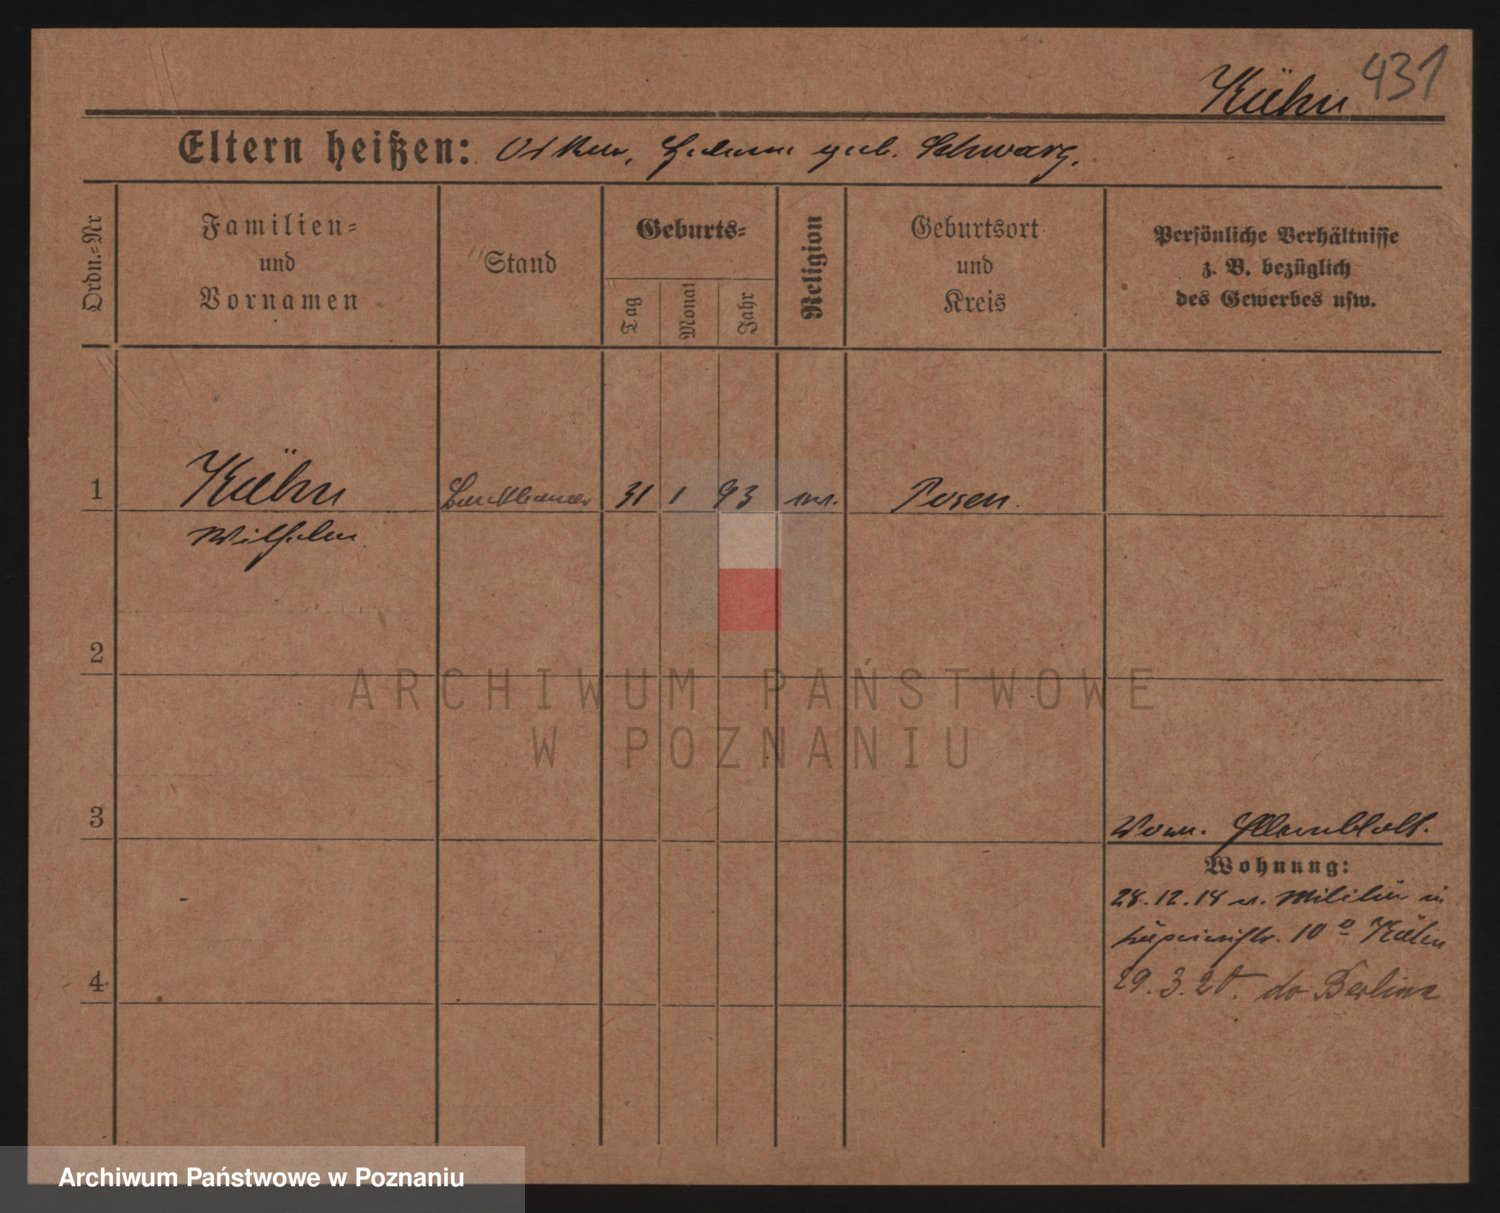 Kühn 431
Eltern heißen: Oskar, geb. Schwarz.
Ordn.=Nr
Familien=
und
Vornamen
Stand
Geburts=
Tag
Monat
Jahr
Religion
Geburtsort
und
Kreis
Persönliche Verhältnisse
z. B. bezüglich
des Gewerbes usw.
1
Kühn
31 1 93
Posen.
Wilhelm
2
ARCHIWUM PAŃSTWOWE
W POZNANIU
3
Wohnung:
28.12.14 Militär in
10
4
29.3.20. do Berlina
Archiwum Państwowe w Poznaniu